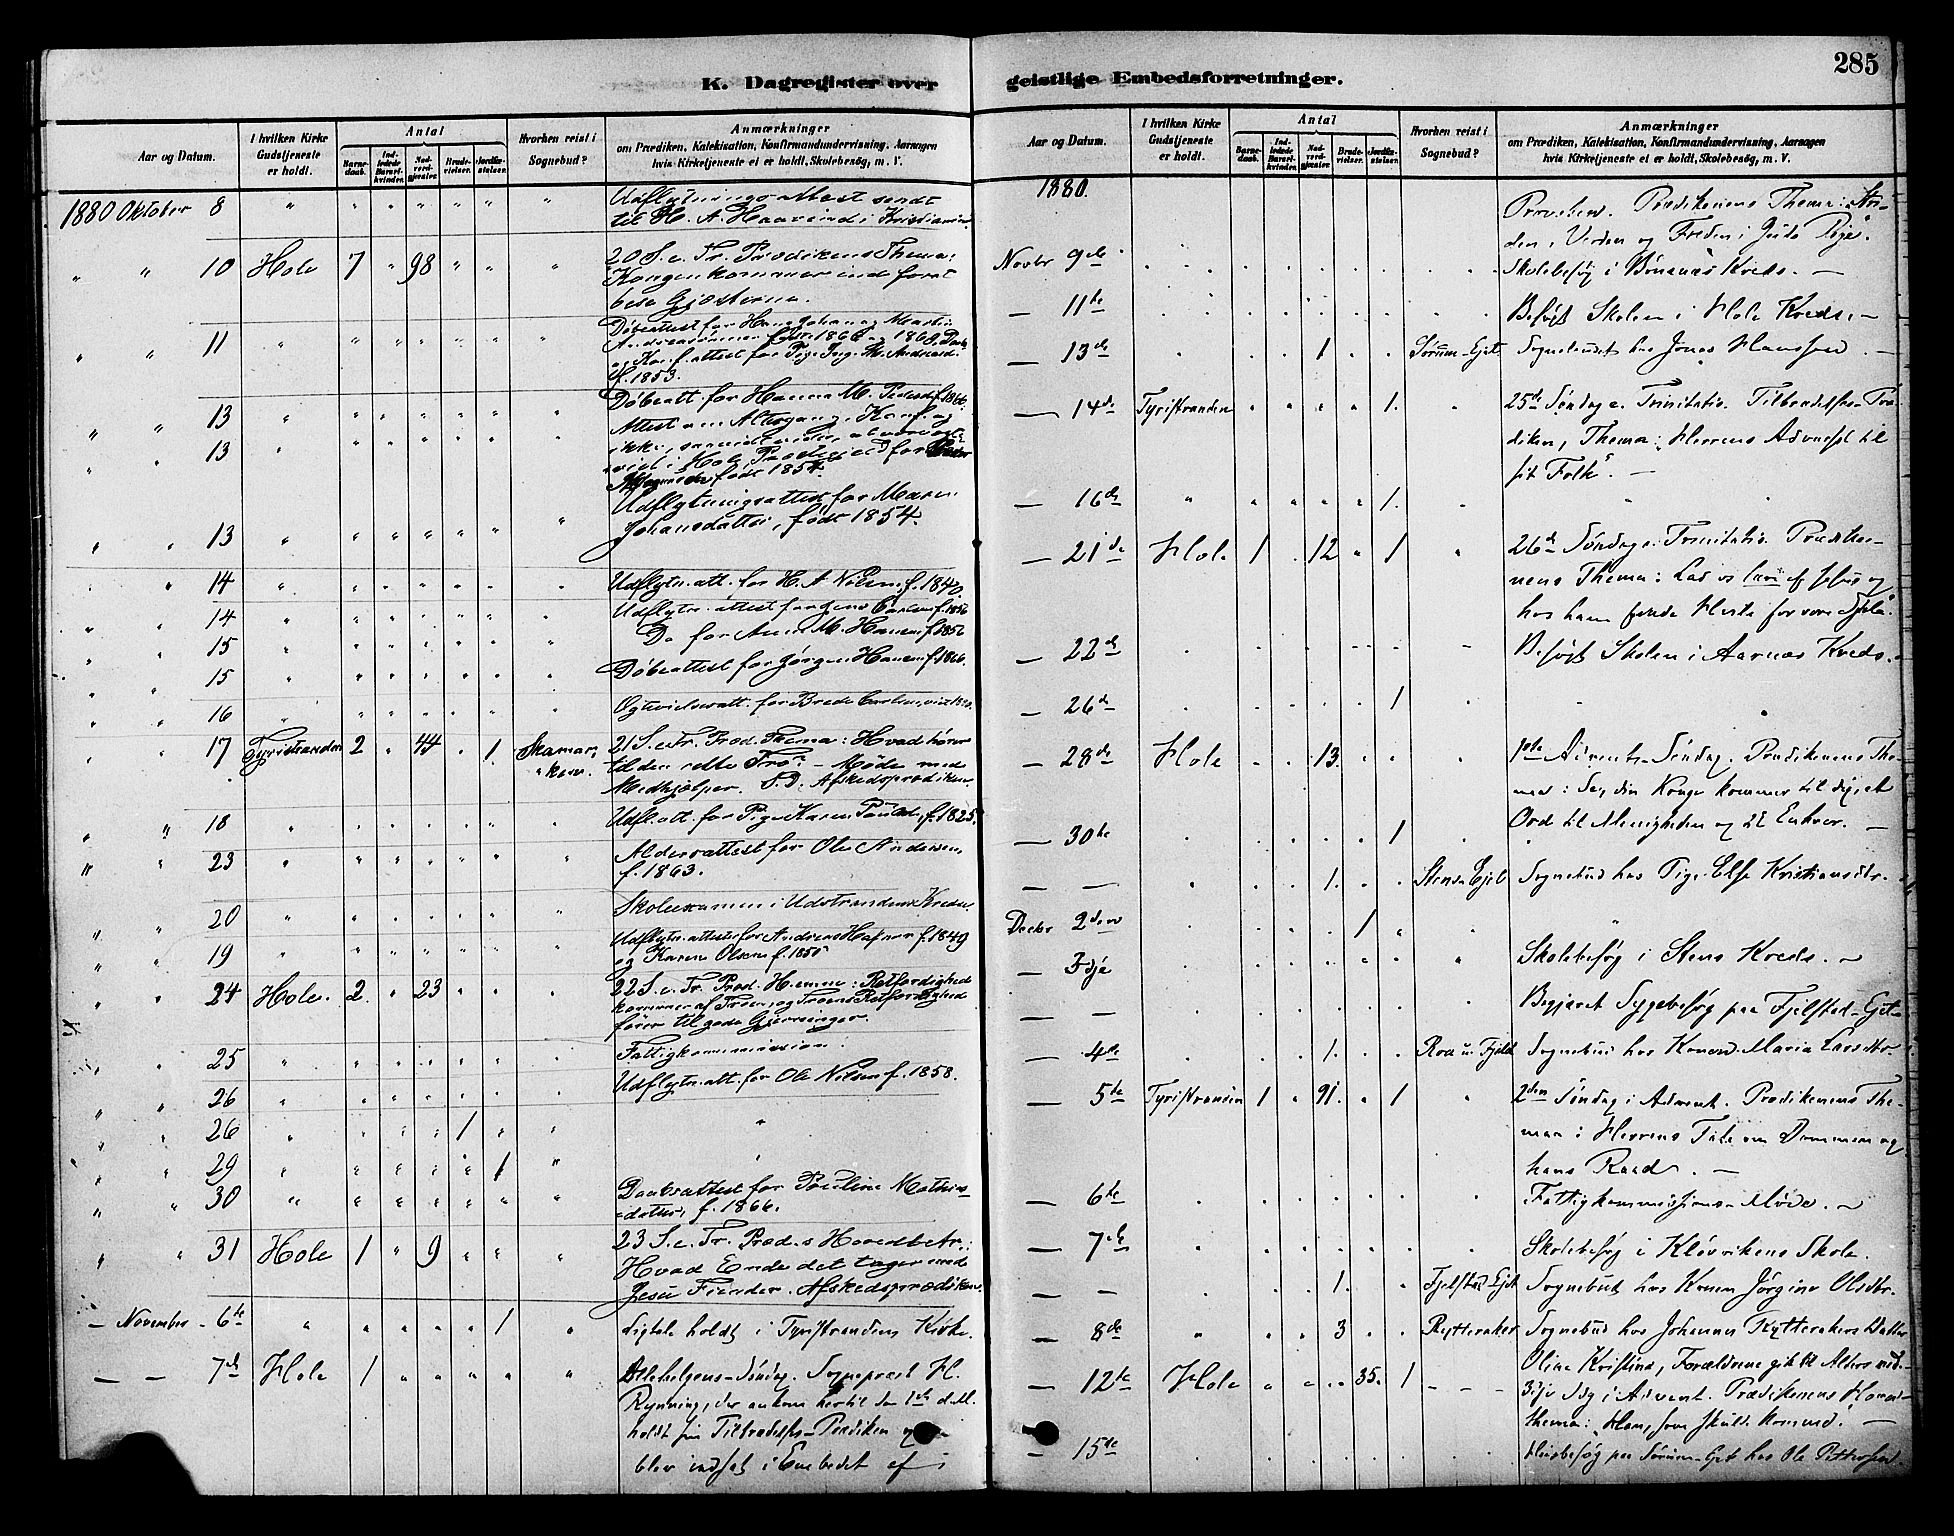 K. Dagregister over
Aar og Datum.
I hvilken Kirke Gudstjeneste er holdt.
Antal
Barnedaab.
Indledede Barselkvinder.
Nadverdgjester.
Brudevielser.
Jordfæstelser.
Hvorhen reist i Sognebud?
Anmærkninger
om Prædiken, Katekisation, Konfirmandundervisning, Aarsagen
hvis Kirketjeneste ei er holdt, Skolebesøg, m. V.
1880 Oktober 8 Udflytningsattest sendt
til H. A. Haarvind i Kristiania
10 Hole 7 98 20 S. e. Tr. Prædikens Thema:
Kongen kommer ind for at
bese Gjæsterne.
11 Døbeattest for Hans Johan og Martin
f. 1853.
13 Døbeatt. for Hanna M. Pedersd. f. 1866.
13 Attest om Altergang, Konf. og
født 1854.
13 Udflytningsattest for Maren
Johansdatter, født 1854.
14 Udflytn. att. for H. A. Nilsen f. 1840.
14 Udflytn. attest for Jens Carlsen f. 1856
15 Do for Anne M. Hansen f. 1856
15 Døbeattest for Jørgen Hansen f. 1866.
16
17 Tyristranden 2 44 1. 21 S. e. Tr. Præd. Thema: Hvad hører
til den rette Tro? – Møde med
Medhjælper. S. D. Afskedsprædiken
18 Udfl. att. for Pige Karen Paulsd. f. 1825.
23 Aldersattest for Ole Andersen,
f. 1863.
20 Skoleexamen i Udstrandens Kreds.
19 Udflytn. attester for Andreas f. 1849
og Karen Olsen f. 1850
24 Hole. 2. 23 22 S. e. Tr. Præd. H. emne: Retfærdighed
kommer af Troen, og Troens Retfærdighed
fører til gode Gjerninger.
25 Fattigkommission
26 Udflytn. att. for Ole Nilsen f. 1858.
26 1
29 1
30 Daabsattest for Pauline Mathis-
datter, f. 1866.
31 Hole 1 9 23 S. e. Tr. Præd.s Hovedbetr.:
Hvad Ende det tager med
Jesu Fiender. Afskedsprædiken
— November – 6te 1 Ligtale holdt i Tyristrandens Kirke.
— — 7de Hole 1 Allehelgens-Søndag. Sognepræst H.
Rynning, der ankom hertil den 1ste d. M.
holdt sin Tiltrædelses-Prædiken og
blev indsat i Embedet af
geistlige Embedsforretninger.
285
Aar og Datum.
I hvilken Kirke Gudstjeneste er holdt.
Antal
Barnedaab.
Indledede Barselkvinder.
Nadverdgjester.
Brudevielser.
Jordfæstelser.
Hvorhen reist i Sognebud?
Anmærkninger
om Prædiken, Katekisation, Konfirmandundervisning, Aarsagen
hvis Kirketjeneste ei er holdt, Skolebesøg, m. V.
1880.
Provsten. Prædikenens Thema: Stri-
den i Verden og Freden i Jesu Rige.
Novbr 9de Skolebesøg i Bønsnæs Kreds. —
— 11te Besøgt Skolen i Hole Kreds. —
— 13de 1 Sørum-Ejet Sognebud hos Jonas Hanssen. —
— 14de Tyristranden 1. 25de Søndag e. Trinitatis. Tiltrædelses-Præ-
diken, Thema: "Herrens Advent til
sit Folk". —
— 16de 1.
— 21de Hole 1 12 1 26de Søndag e. Trinitatis. Prædike-
nens Thema: Lad os lære af Jesus og
hos ham finde Hvile for vore Sjæle.
— 22de Besøgt Skolen i Aarnæs Kreds. —
— 26de 1
— 28de Hole 13. 1ste Advents-Søndag. Prædikenens The-
ma: Se, din Konge kommer til dig, et
Ord til Menigheden og til Enhver. —
— 30te 1
— — 1. Stens-Ejet Sognebud hos Pige Else Kristiansdtr.
Decbr 2den 1
— 3dje Skolebesøg i Stens Kreds. —
— — Begjæret Sygebesøg paa Fjelstad-Ejet –
— 4de 1. Sognebud hos Konen Maria Larsdtr
— 5te Tyristranden 1 91. 1 2den Søndag i Advent. Prædikenens The-
ma: Herrens Tale om Dommen og
hans Raad. —
— 6te Fattigkommissions-Møde. —
— 7de Skolebesøg i Kløvvikens Skole.
— — 1. Fjelstad Ejet Sognebud hos Konen Jørgine Olsdtr.
— 8de 3 Rytteraker Sognebud hos Johannes Rytterakers Datter
Oline Kristine, Forældrene gik til Alters med.
— 12te Hole 35. 1 3dje Sdg i Advent. Prædikenens Hoved-
thema: Han, som skulde komme. —
— 15de Husbesøg paa Sørum-Ejet hos Ole Pettersen.